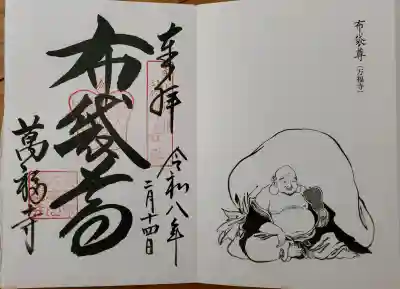 布袋尊(万福寺)
奉拝
令和八年
二月十四日
布袋尊
萬福寺